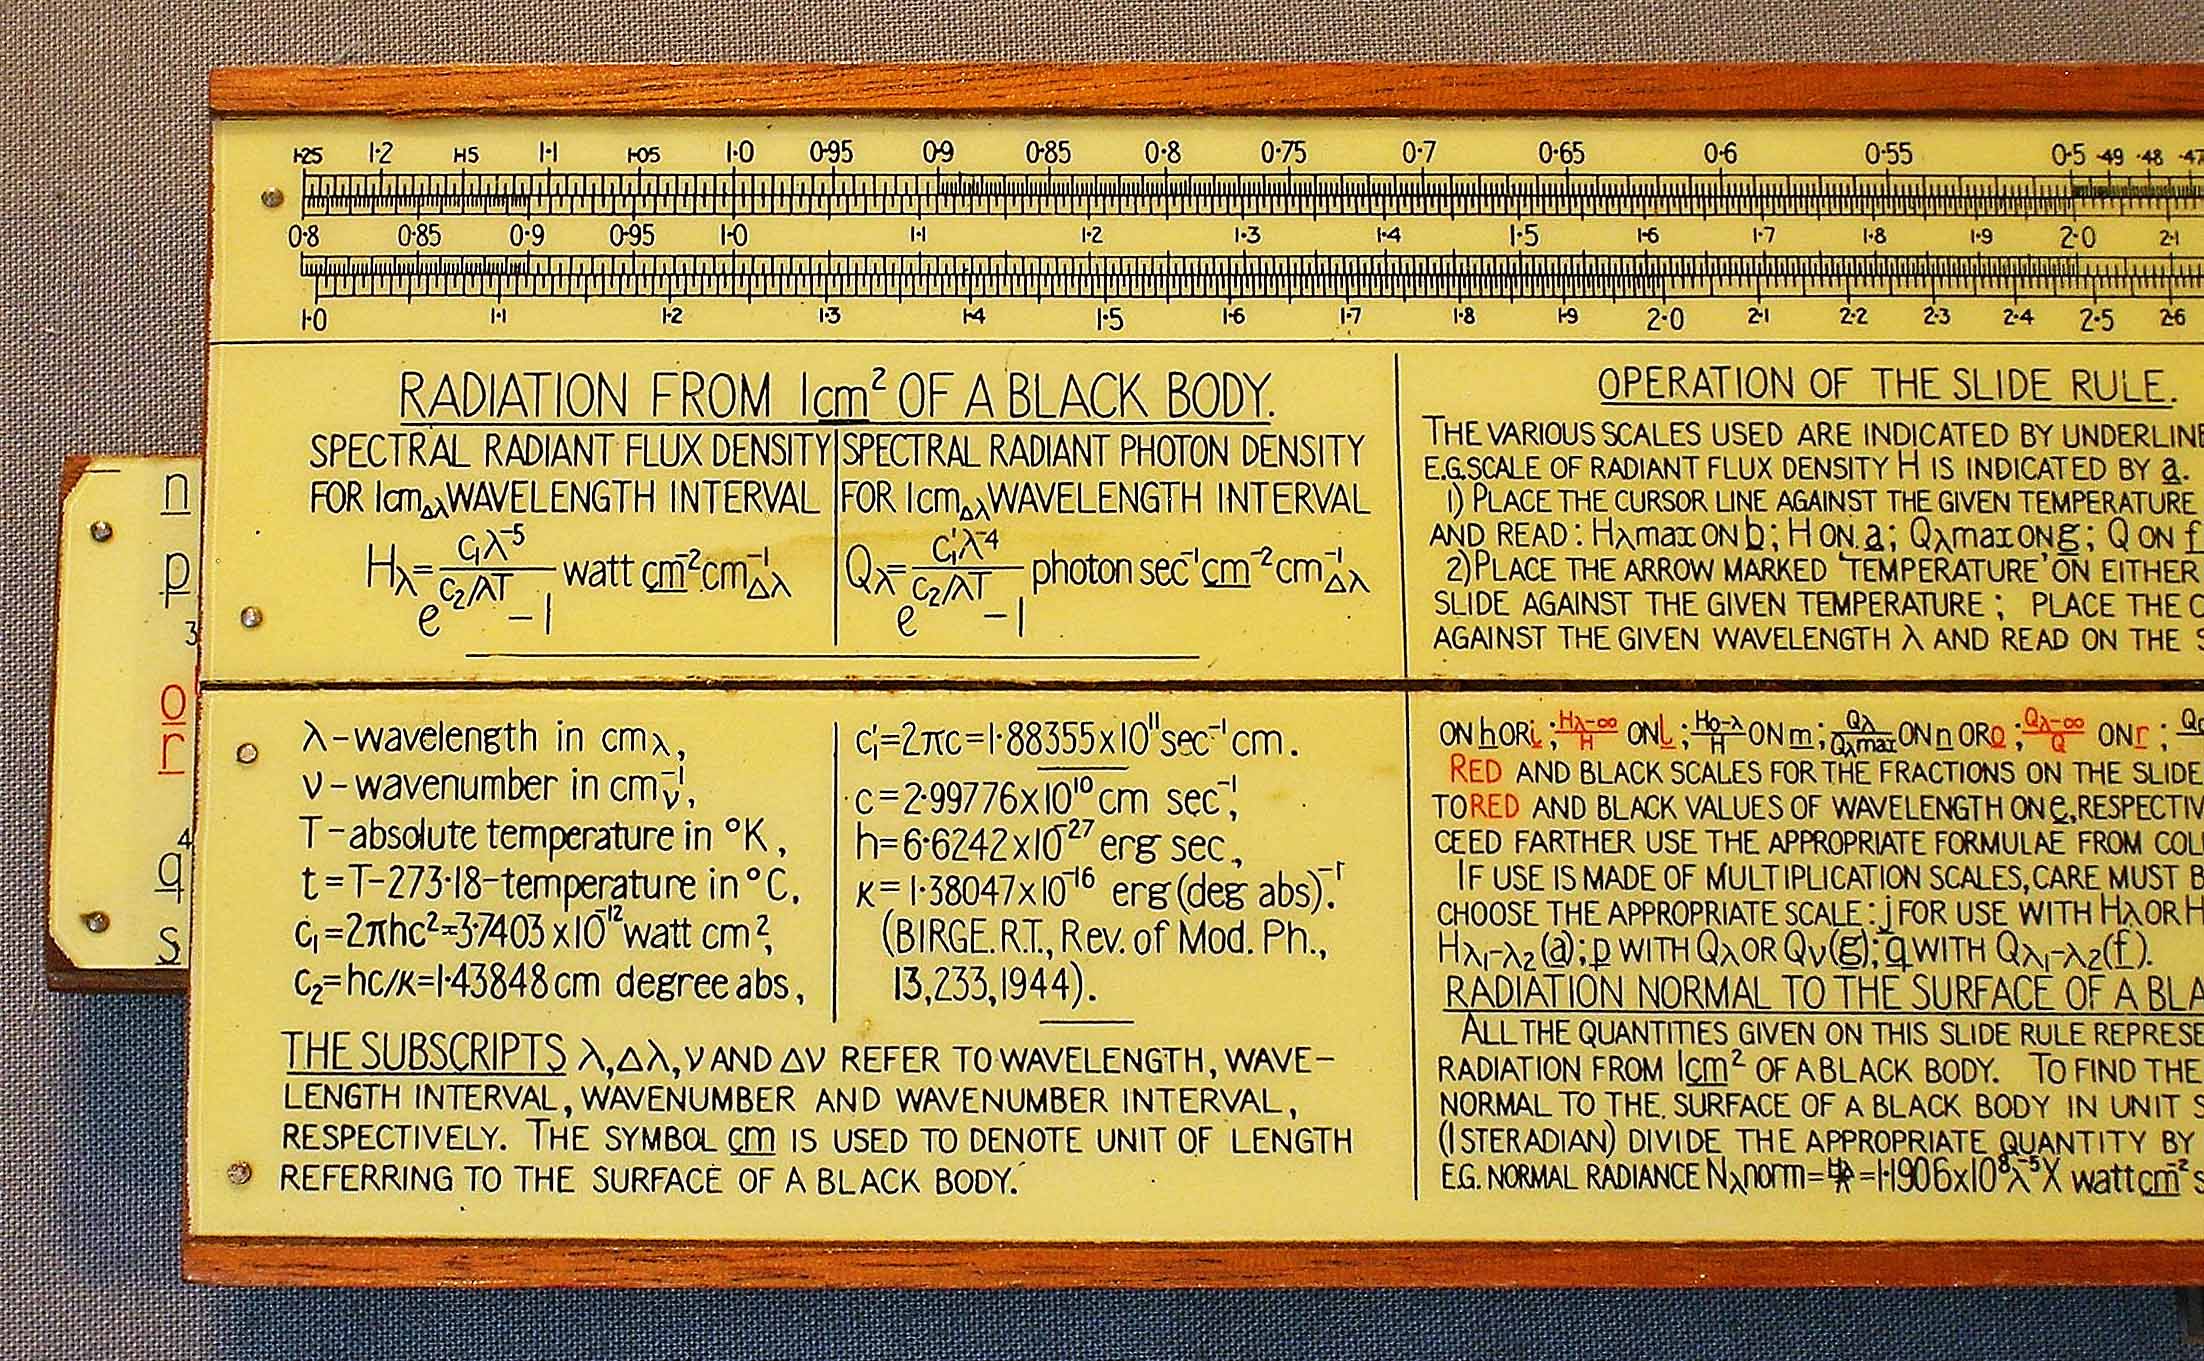 1·25 1·2 1·15 1·1 1·05 1·0 0·95 0·9 0·85 0·8 0·75 0·7 0·65 0·6 0·55 0·5 ·49 ·48 ·47
0·8 0·85 0·9 0·95 1·0 1·1 1·2 1·3 1·4 1·5 1·6 1·7 1·8 1·9 2·0 2·1
1·0 1·1 1·2 1·3 1·4 1·5 1·6 1·7 1·8 1·9 2·0 2·1 2·2 2·3 2·4 2·5 2·6
RADIATION FROM 1cm² OF A BLACK BODY.
SPECTRAL RADIANT FLUX DENSITY
FOR 1cm_Δλ WAVELENGTH INTERVAL
H_λ = c₁λ⁻⁵ / (e^(c₂/λT) − 1) watt cm⁻² cm⁻¹_Δλ
SPECTRAL RADIANT PHOTON DENSITY
FOR 1cm_Δλ WAVELENGTH INTERVAL
Q_λ = c₁'λ⁻⁴ / (e^(c₂/λT) − 1) photon sec⁻¹ cm⁻² cm⁻¹_Δλ
λ – wavelength in cm_λ,
ν – wavenumber in cm⁻¹_ν,
T – absolute temperature in °K,
t = T – 273·18 – temperature in °C,
c₁ = 2πhc² = 3·7403 x 10⁻¹² watt cm²,
c₂ = hc/κ = 1·43848 cm degree abs,
c₁' = 2πc = 1·88355 x 10¹¹ sec⁻¹ cm.
c = 2·99776 x 10¹⁰ cm sec⁻¹,
h = 6·6242 x 10⁻²⁷ erg sec,
κ = 1·38047 x 10⁻¹⁶ erg (deg abs)⁻¹.
(BIRGE. R.T., Rev. of Mod. Ph.,
13, 233, 1944).
THE SUBSCRIPTS λ, Δλ, ν AND Δν REFER TO WAVELENGTH, WAVE–
LENGTH INTERVAL, WAVENUMBER AND WAVENUMBER INTERVAL,
RESPECTIVELY. THE SYMBOL cm IS USED TO DENOTE UNIT OF LENGTH
REFERRING TO THE SURFACE OF A BLACK BODY.
OPERATION OF THE SLIDE RULE.
THE VARIOUS SCALES USED ARE INDICATED BY UNDERLINE
E.G. SCALE OF RADIANT FLUX DENSITY H IS INDICATED BY a.
1) PLACE THE CURSOR LINE AGAINST THE GIVEN TEMPERATURE
AND READ : Hλmax ON b ; H ON a ; Qλmax ON g ; Q ON f
2) PLACE THE ARROW MARKED 'TEMPERATURE' ON EITHER
SLIDE AGAINST THE GIVEN TEMPERATURE ; PLACE THE C
AGAINST THE GIVEN WAVELENGTH λ AND READ ON THE S
ON h OR i ; Hλ-∞/H ON l ; H0-λ/H ON m ; Qλ/Qλmax ON n OR o ; Qλ-∞/Q ON r ; Q0
RED AND BLACK SCALES FOR THE FRACTIONS ON THE SLIDE
TO RED AND BLACK VALUES OF WAVELENGTH ON e, RESPECTIV
CEED FARTHER USE THE APPROPRIATE FORMULAE FROM COL
IF USE IS MADE OF MULTIPLICATION SCALES, CARE MUST B
CHOOSE THE APPROPRIATE SCALE : j FOR USE WITH Hλ OR H
Hλ₁-λ₂ (a) ; p WITH Qλ OR Qν (g) ; q WITH Qλ₁-λ₂ (f).
RADIATION NORMAL TO THE SURFACE OF A BLA
ALL THE QUANTITIES GIVEN ON THIS SLIDE RULE REPRESE
RADIATION FROM 1cm² OF A BLACK BODY. TO FIND THE
NORMAL TO THE SURFACE OF A BLACK BODY IN UNIT S
(1 STERADIAN) DIVIDE THE APPROPRIATE QUANTITY BY
E.G. NORMAL RADIANCE Nλnorm = Hλ/π = 1·1906x10⁸λ⁻⁵X watt cm⁻² s
n
p
3
o
r
4
q
s